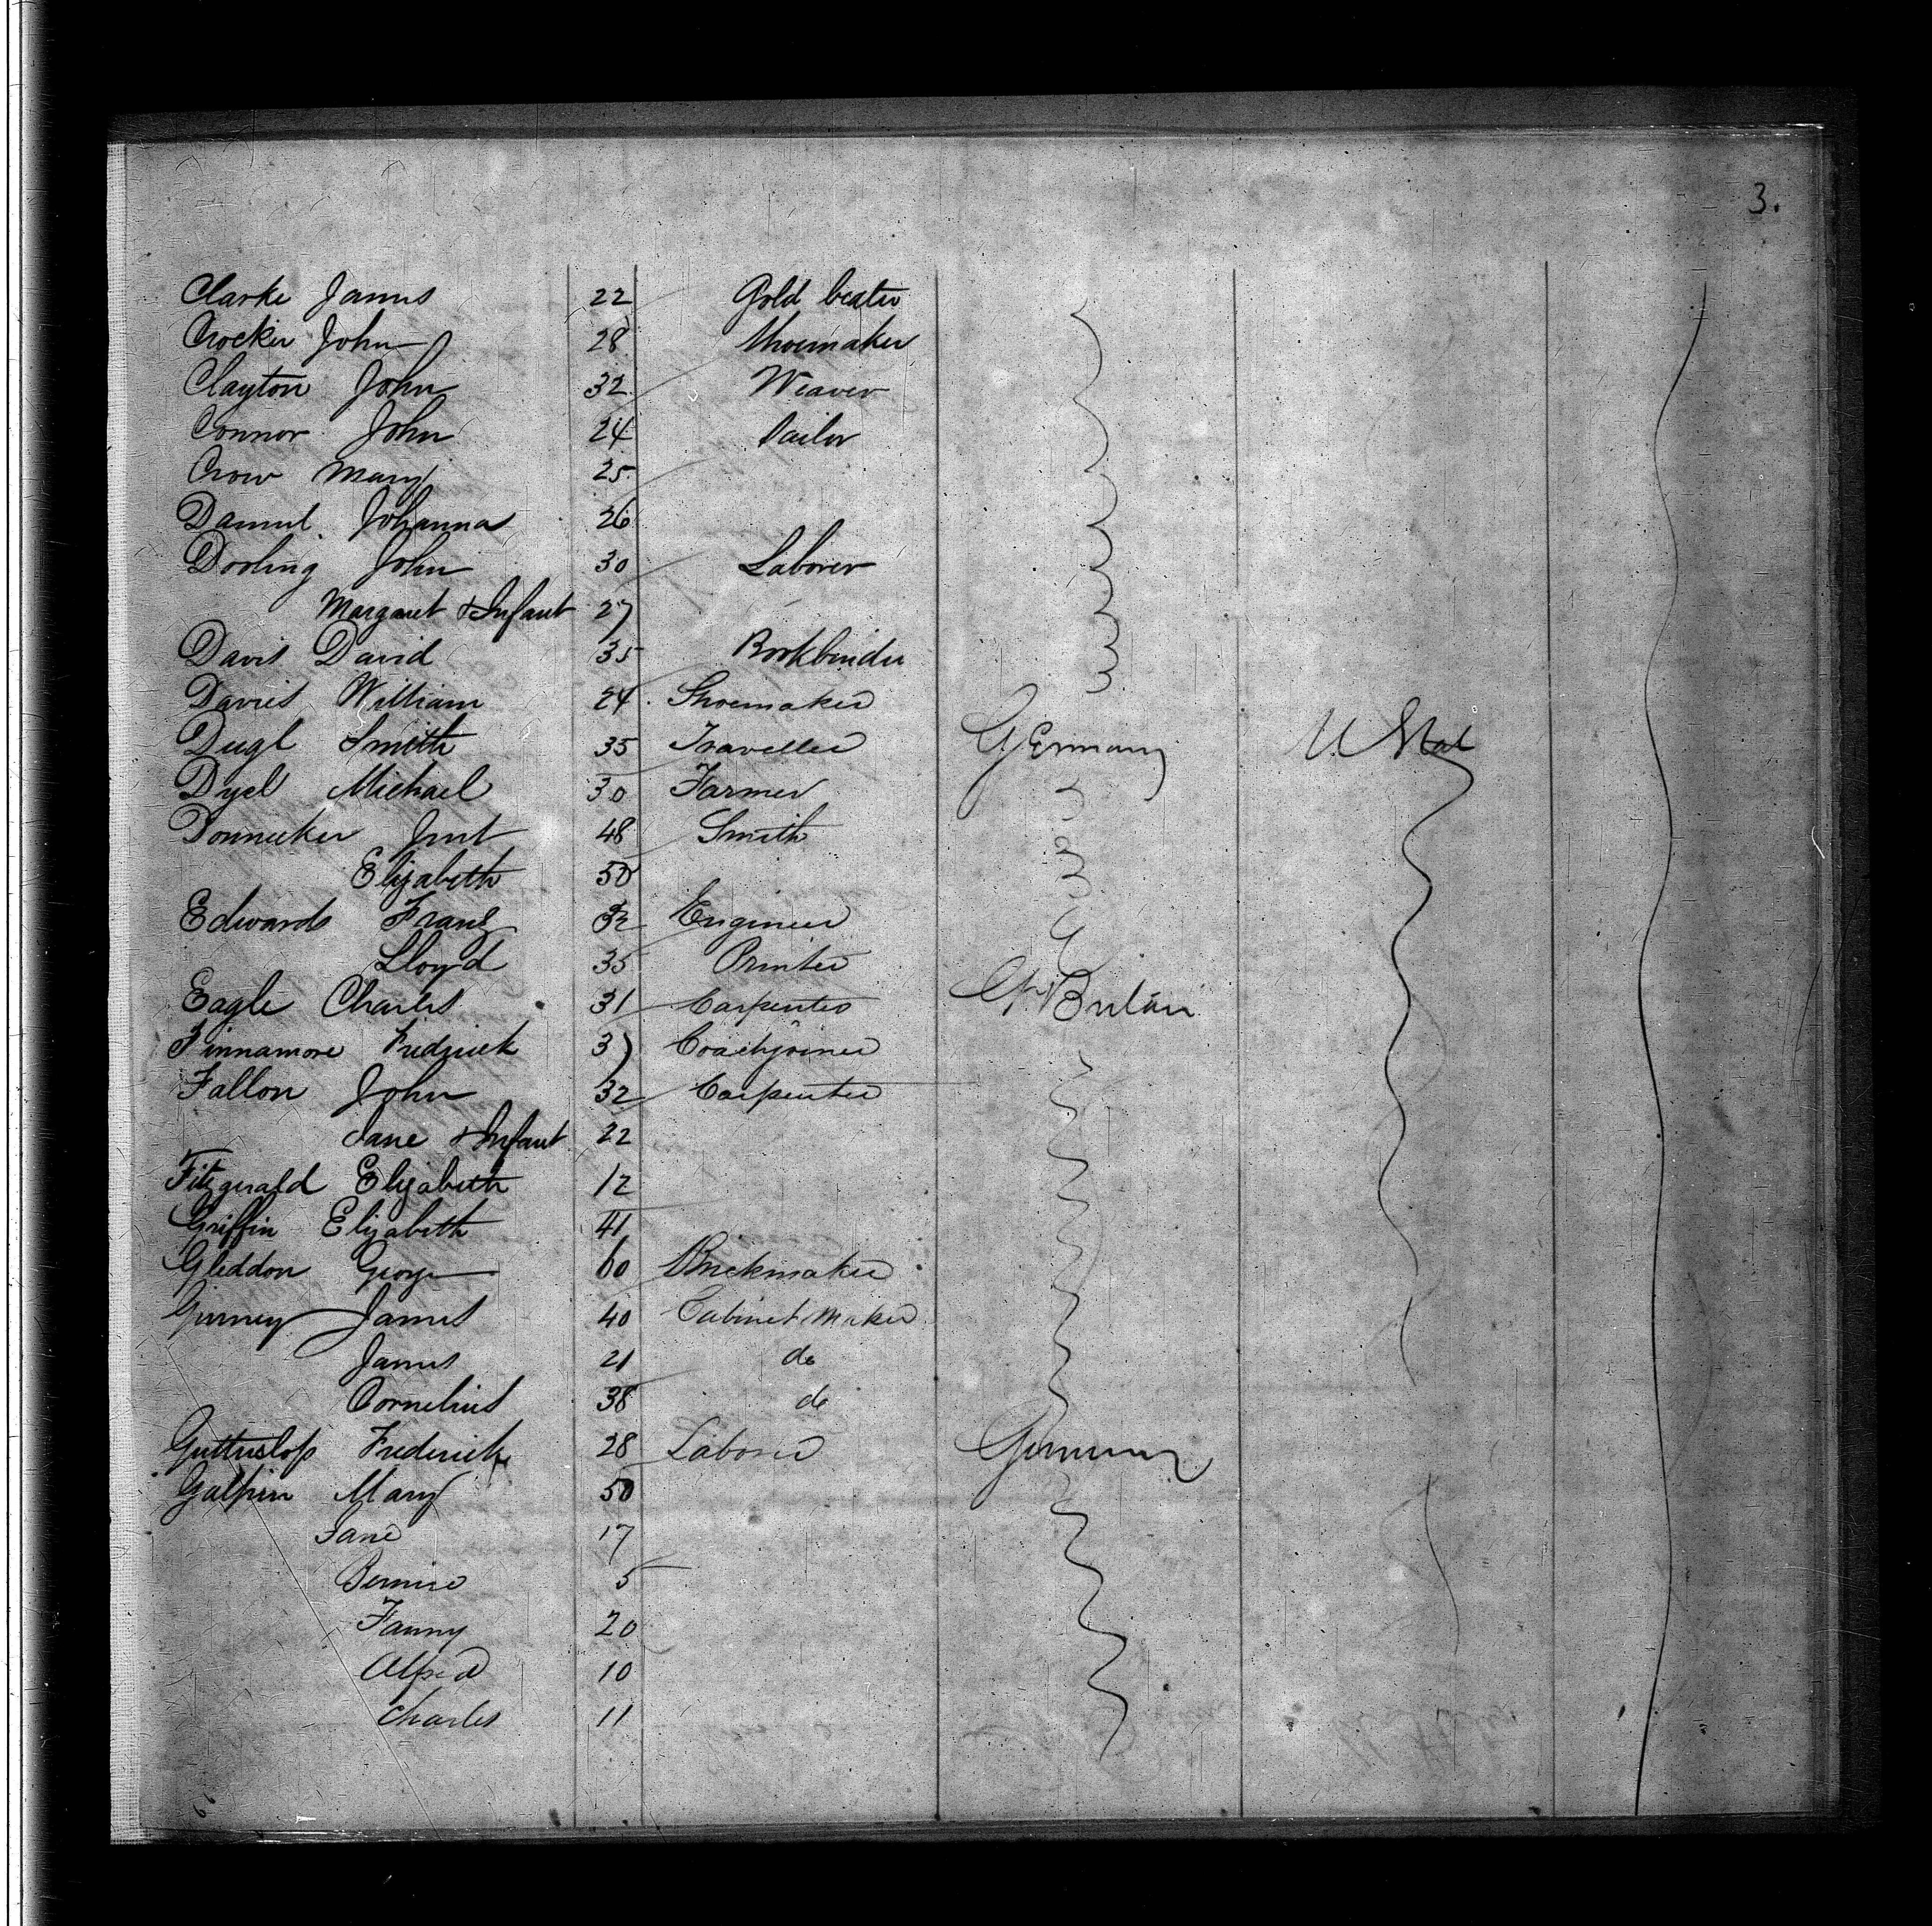 3.
Clarke James 22 Gold beater
Crocker John 28 Shoemaker
Clayton John 32 Weaver
Connor John 24 Sailor
Crow Mary 25
Johanna 26
Dorling John 30 Laborer
Margaret & Infant 27
Davis David 35 Bookbinder
Davies William 24 Shoemaker
Smith 35 Traveller Germany U. Stat
Michael 30 Farmer
Donnecker 48 Smith
Elizabeth 50
Edwards Frank 32 Engineer
Lloyd 35 Printer
Eagle Charles 31 Carpenter Gt Britain
Finnamore Frederick 37 Coachjoiner
Fallon John 32 Carpenter
Jane & Infant 22
Fitzgerald Elizabeth 12
Griffin Elizabeth 41
Gleddon George 60 Brickmaker
Gurney James 40 Cabinet Maker
James 21 do
Cornelius 38 do
Frederick 28 Laborer Germany
Galpin Mary 50
Jane 17
5
Fanny 20
Alfred 10
Charles 11